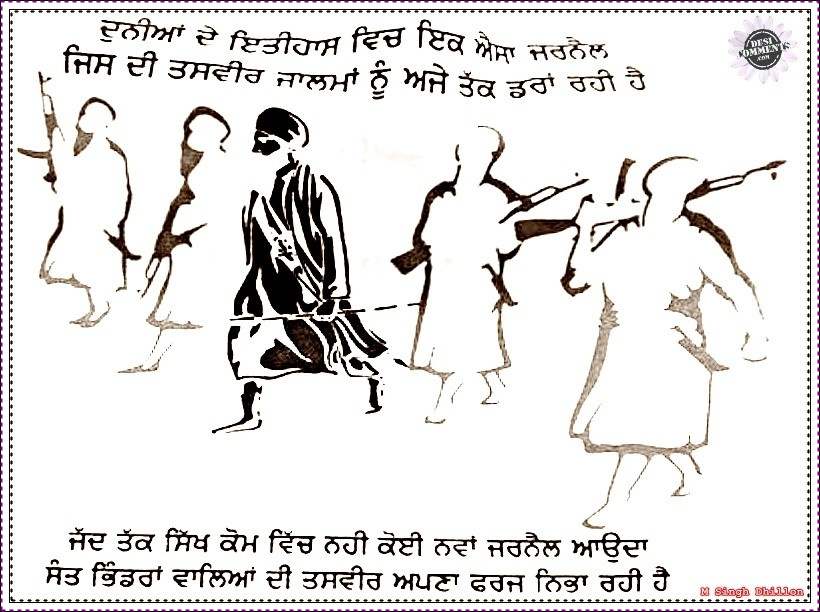 ਦੁਨੀਆਂ ਦੇ ਇਤੀਹਾਸ ਵਿਚ ਇਕ ਐਸਾ ਜਰਨੈਲ
ਜਿਸ ਦੀ ਤਸਵੀਰ ਜਾਲਮਾਂ ਨੂੰ ਅਜੇ ਤੱਕ ਡਰਾਂ ਰਹੀ ਹੈ
DESI
COMMENTS
.COM
ਜੱਦ ਤੱਕ ਸਿੱਖ ਕੋਮ ਵਿੱਚ ਨਹੀ ਕੋਈ ਨਵਾਂ ਜਰਨੈਲ ਆਉਦਾ
ਸੰਤ ਭਿੰਡਰਾਂ ਵਾਲਿਆਂ ਦੀ ਤਸਵੀਰ ਅਪਣਾ ਫਰਜ ਨਿਭਾ ਰਹੀ ਹੈ
M Singh Dhillon